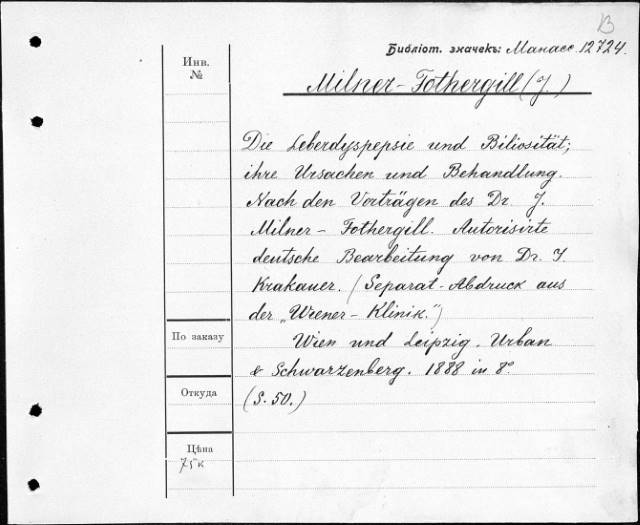 B
Библіот. значекъ: Манасс. 12724.
Инв.
№
Milner-Fothergill (J.)
Die Leberdyspepsie und Biliosität;
ihre Ursachen und Behandlung.
Nach den Vorträgen des Dr. J.
Milner-Fothergill. Autorisirte
deutsche Bearbeitung von Dr. J.
Krakauer. (Separat-Abdruck aus
der „Wiener-Klinik.")
Wien und Leipzig. Urban
& Schwarzenberg. 1888 in 8°
(S. 50.)
По заказу
Откуда
Цѣна
75к